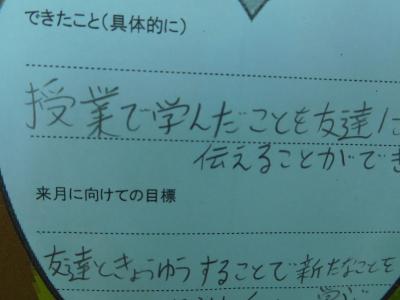 できたこと(具体的に)
授業で学んだことを友達に
伝えることができ
来月に向けての目標
友達ときょうゆうすることで新たなことを